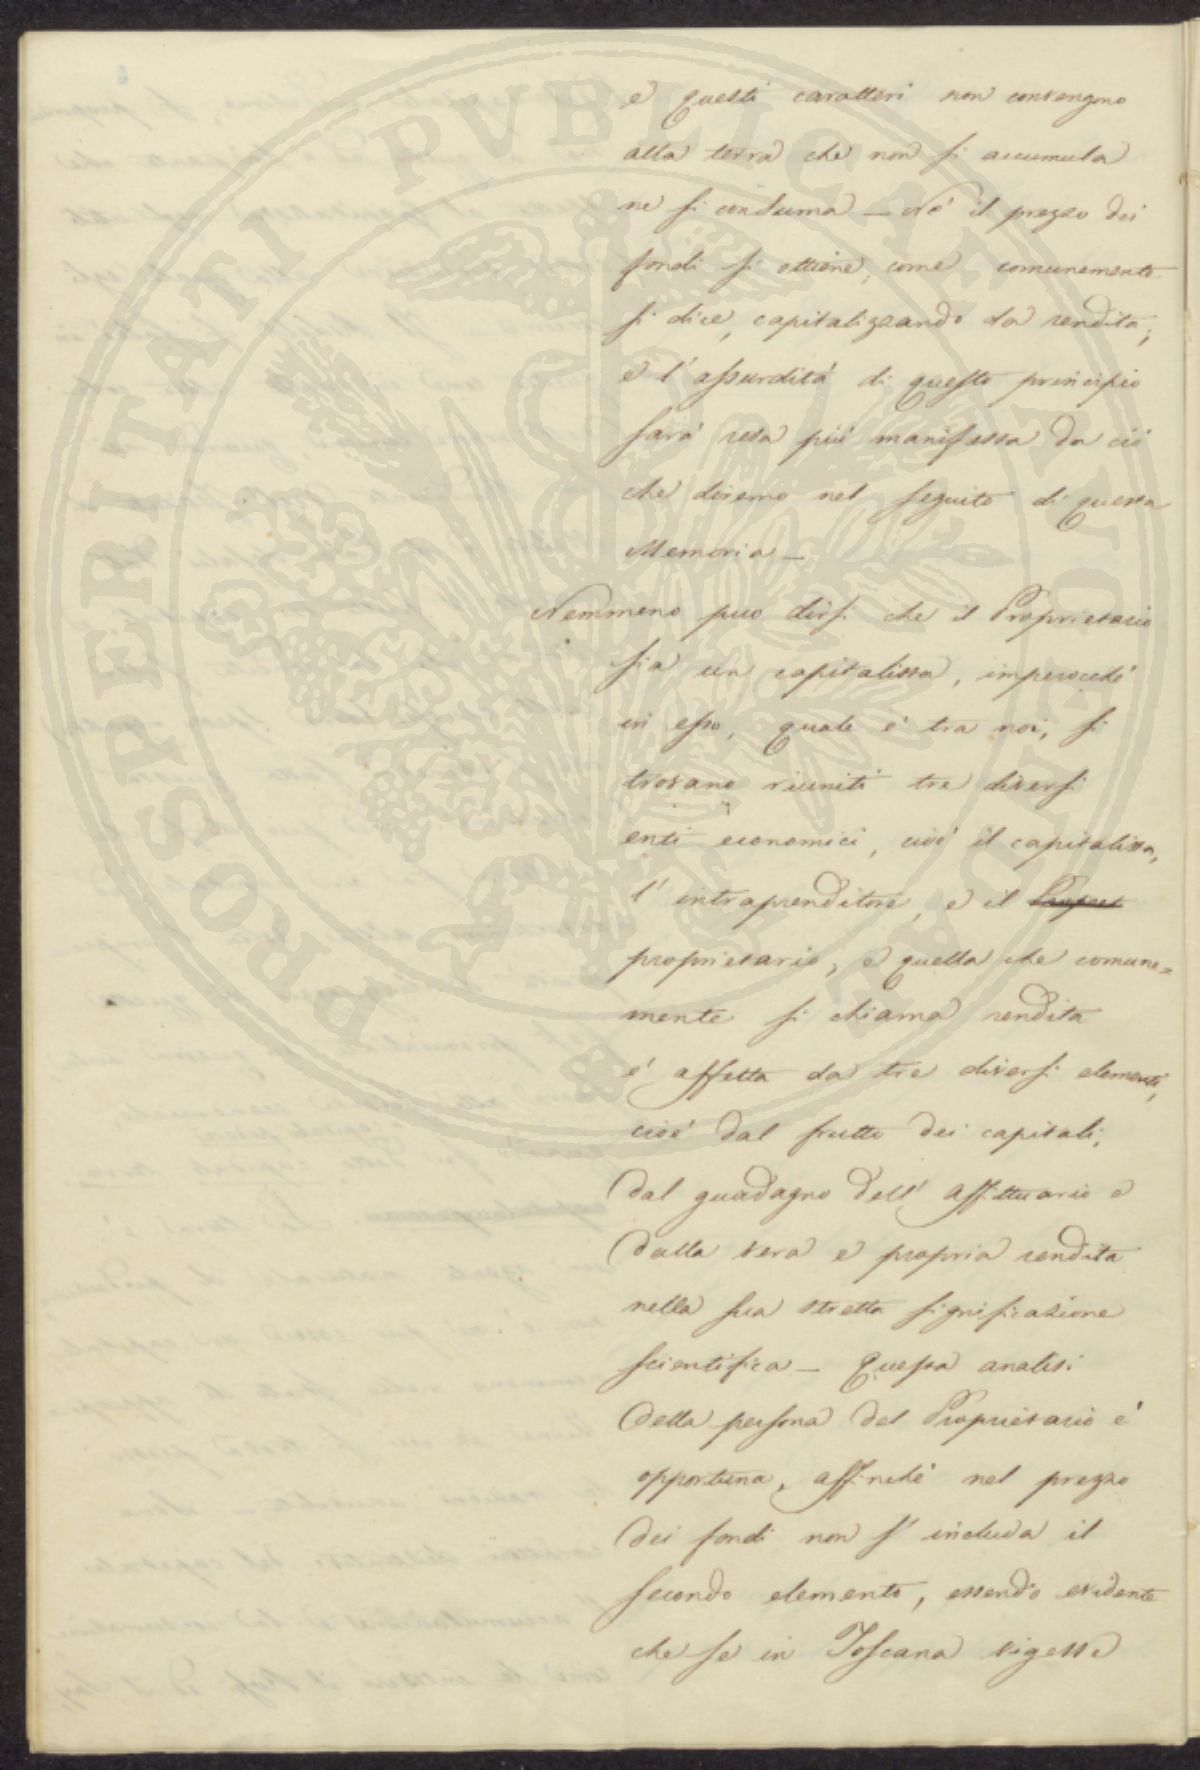 e questi caratteri non convengono
alla terra che non si accumula
ne si consuma – Nè il prezzo dei
fondi si ottiene, come comunemente
si dice, capitalizzando la rendita;
e l'assurdità di questo principio
sarà resa più manifesta da ciò
che diremo nel seguito di questa
Memoria –
Nemmeno può dirsi che il Proprietario
sia un capitalista, imperocchè
in esso, quale è tra noi, si
trovano riuniti tre diversi
enti economici, cioè il capitalista,
l'intraprenditore, e il
proprietario, e quella che comune=
mente si chiama rendita
è affetta da tre diversi elementi,
cioè dal frutto dei capitali,
dal guadagno dell'affittuario e
dalla vera e propria rendita
nella sua stretta significazione
scientifica – Questa analisi
della persona del Proprietario è
opportuna, affinchè nel prezzo
dei fondi non s'includa il
secondo elemento, essendo evidente
che se in Toscana vigesse
PROSPERITATI PVBLICAE